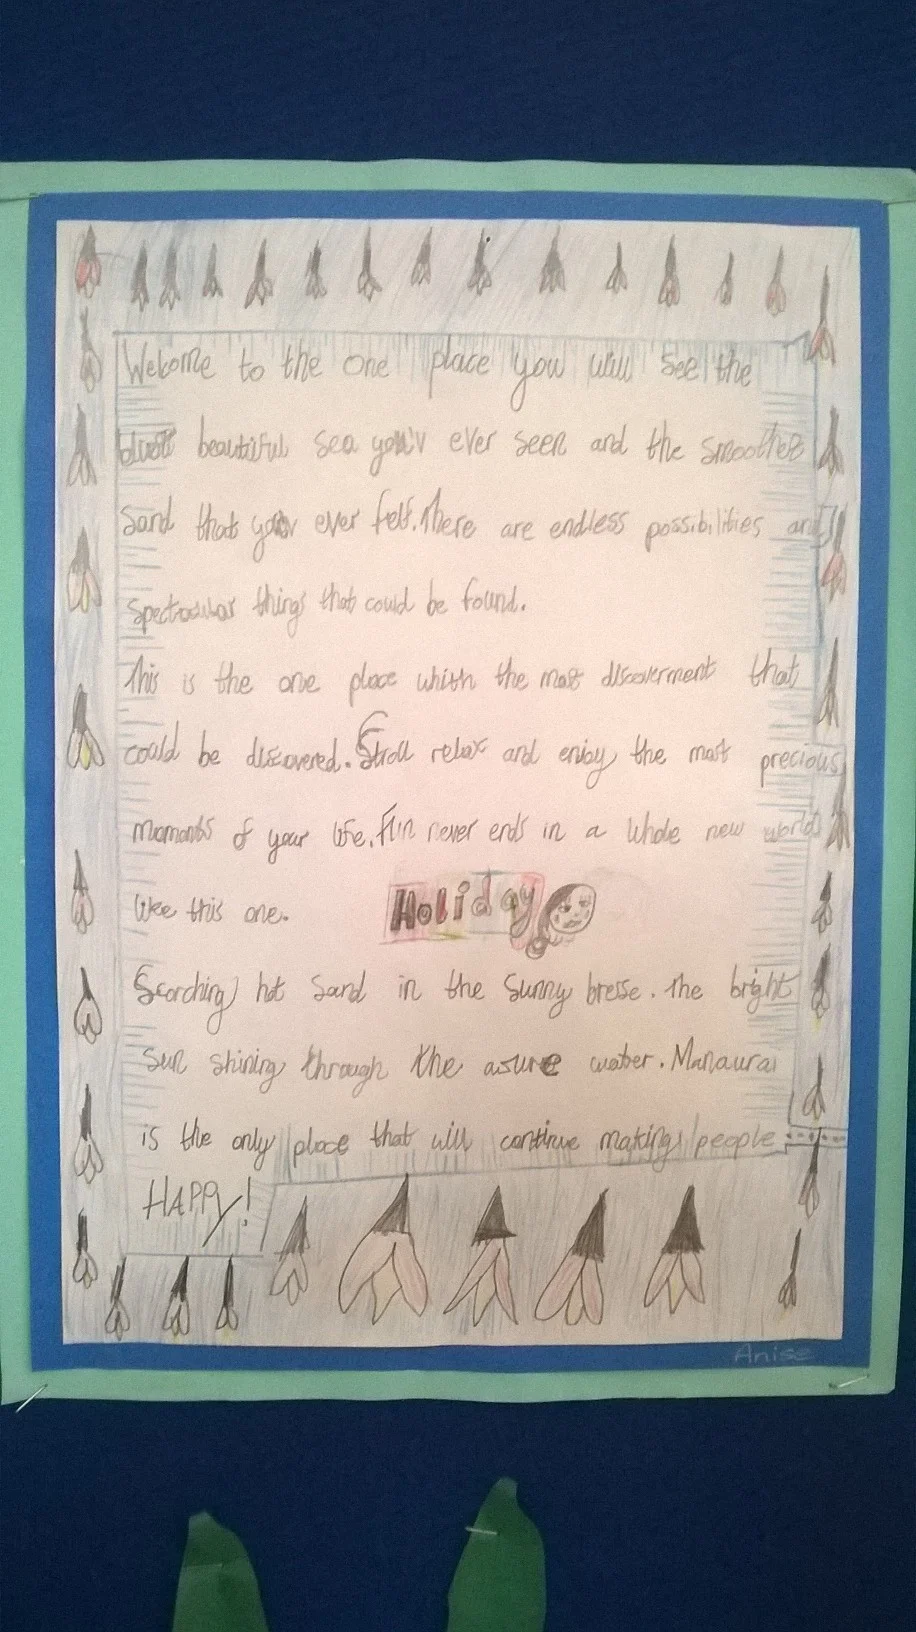 Welcome to the one place you will see the
beautiful sea you'v ever seen and the smoothes
sand that you'v ever felt. There are endless possibilities and
spectacular things that could be found.
This is the one place whith the most discoverment that
could be discovered. Stroll relax and enjoy the most precious
moments of your life. Fun never ends in a whole new world
like this one.
Holiday
Scorching hot sand in the sunny bresse. The bright
sun shining through the asure water. Manaurai
is the only place that will continue making people
HAPPY!
Anise